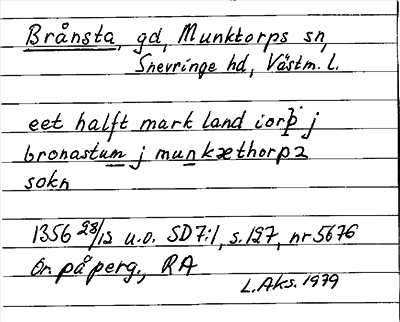 Brånsta, gd, Munktorps sn,
Snevringe hd, Västm. l.
eet halft mark land iorþ j
bronastum j munkæthorp2
sokn
1356 28/12 u.o. SD7:1, s.127, nr 5676
Or. på perg., RA
L.Aks. 1979